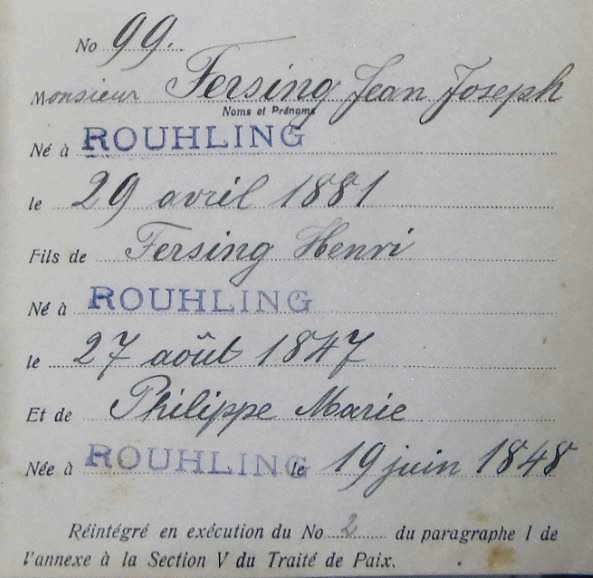 No 99.
Monsieur Fersing Jean Joseph
Noms et Prénoms
Né à ROUHLING
le 29 avril 1881
Fils de Fersing Henri
Né à ROUHLING
le 27 août 1847
Et de Philippe Marie
Née à ROUHLING le 19 juin 1848
Réintégré en exécution du No 2 du paragraphe I de
l'annexe à la Section V du Traité de Paix.